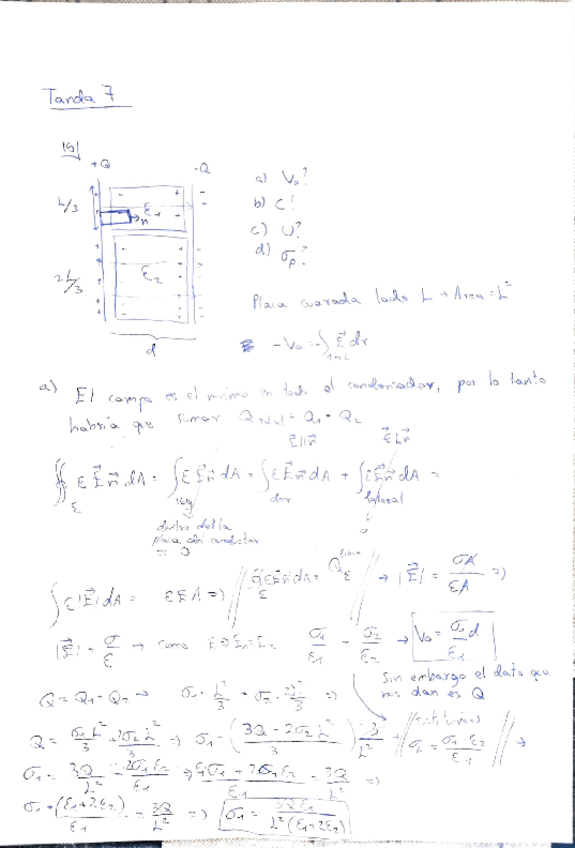 Tanda 7
15
+Q
-Q
L/3
ε₁
n
2L/3
ε₂
d
a) V₀?
b) C?
c) U?
d) σp?
Placa cuadrada lado L → Area = L²
- V₀ = -∫ E⃗ dr
a) El campo es el mismo en todo el condensador, por lo tanto
habría que sumar Q total = Q₁ + Q₂
E⃗ || n⃗
E⃗ ⊥ n⃗
∯ ε E⃗ n⃗ dA = ∫ ε E⃗ n⃗ dA + ∫ ε E⃗ n⃗ dA + ∫ ε E⃗ n⃗ dA =
izq
der
lateral
dentro de la
placa, conductor
= 0
0
∫ ε |E⃗| dA = ε E A => // ∮ ε E⃗ n⃗ dA = Q libre // → |E⃗| = σA/εA =>
|E⃗| = σ/ε → como E = E₁ = E₂ σ₁/ε₁ = σ₂/ε₂ → V₀ = σ₁/ε₁ d
Sin embargo el dato que
nos dan es Q
Q = Q₁ + Q₂ → σ₁ · L²/3 + σ₂ · 2L²/3 =>
Q = σ₁L²/3 + 2σ₂L²/3 => σ₁ = (3Q - 2σ₂L²/3) · 3/L² = // sustituimos σ₂ = σ₁·ε₂/ε₁ // →
σ₁ = 3Q/L² - 2σ₁ε₂/ε₁ => ε₁σ₁ + 2σ₁ε₂/ε₁ = 3Q/L² =>
σ₁ · (ε₁+2ε₂)/ε₁ = 3Q/L² => σ₁ = 3Qε₁/L²(ε₁+2ε₂)